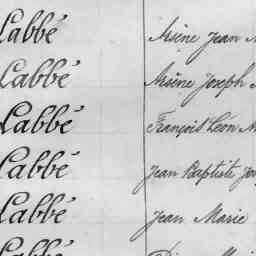 Labbé Arsène Jean
Labbé Arsène Joseph
Labbé François Léon
Labbé Jean Baptiste
Labbé Jean Marie
Labbé